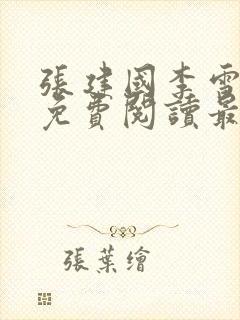 張建國李雪
免費閱讀最
張葉繪